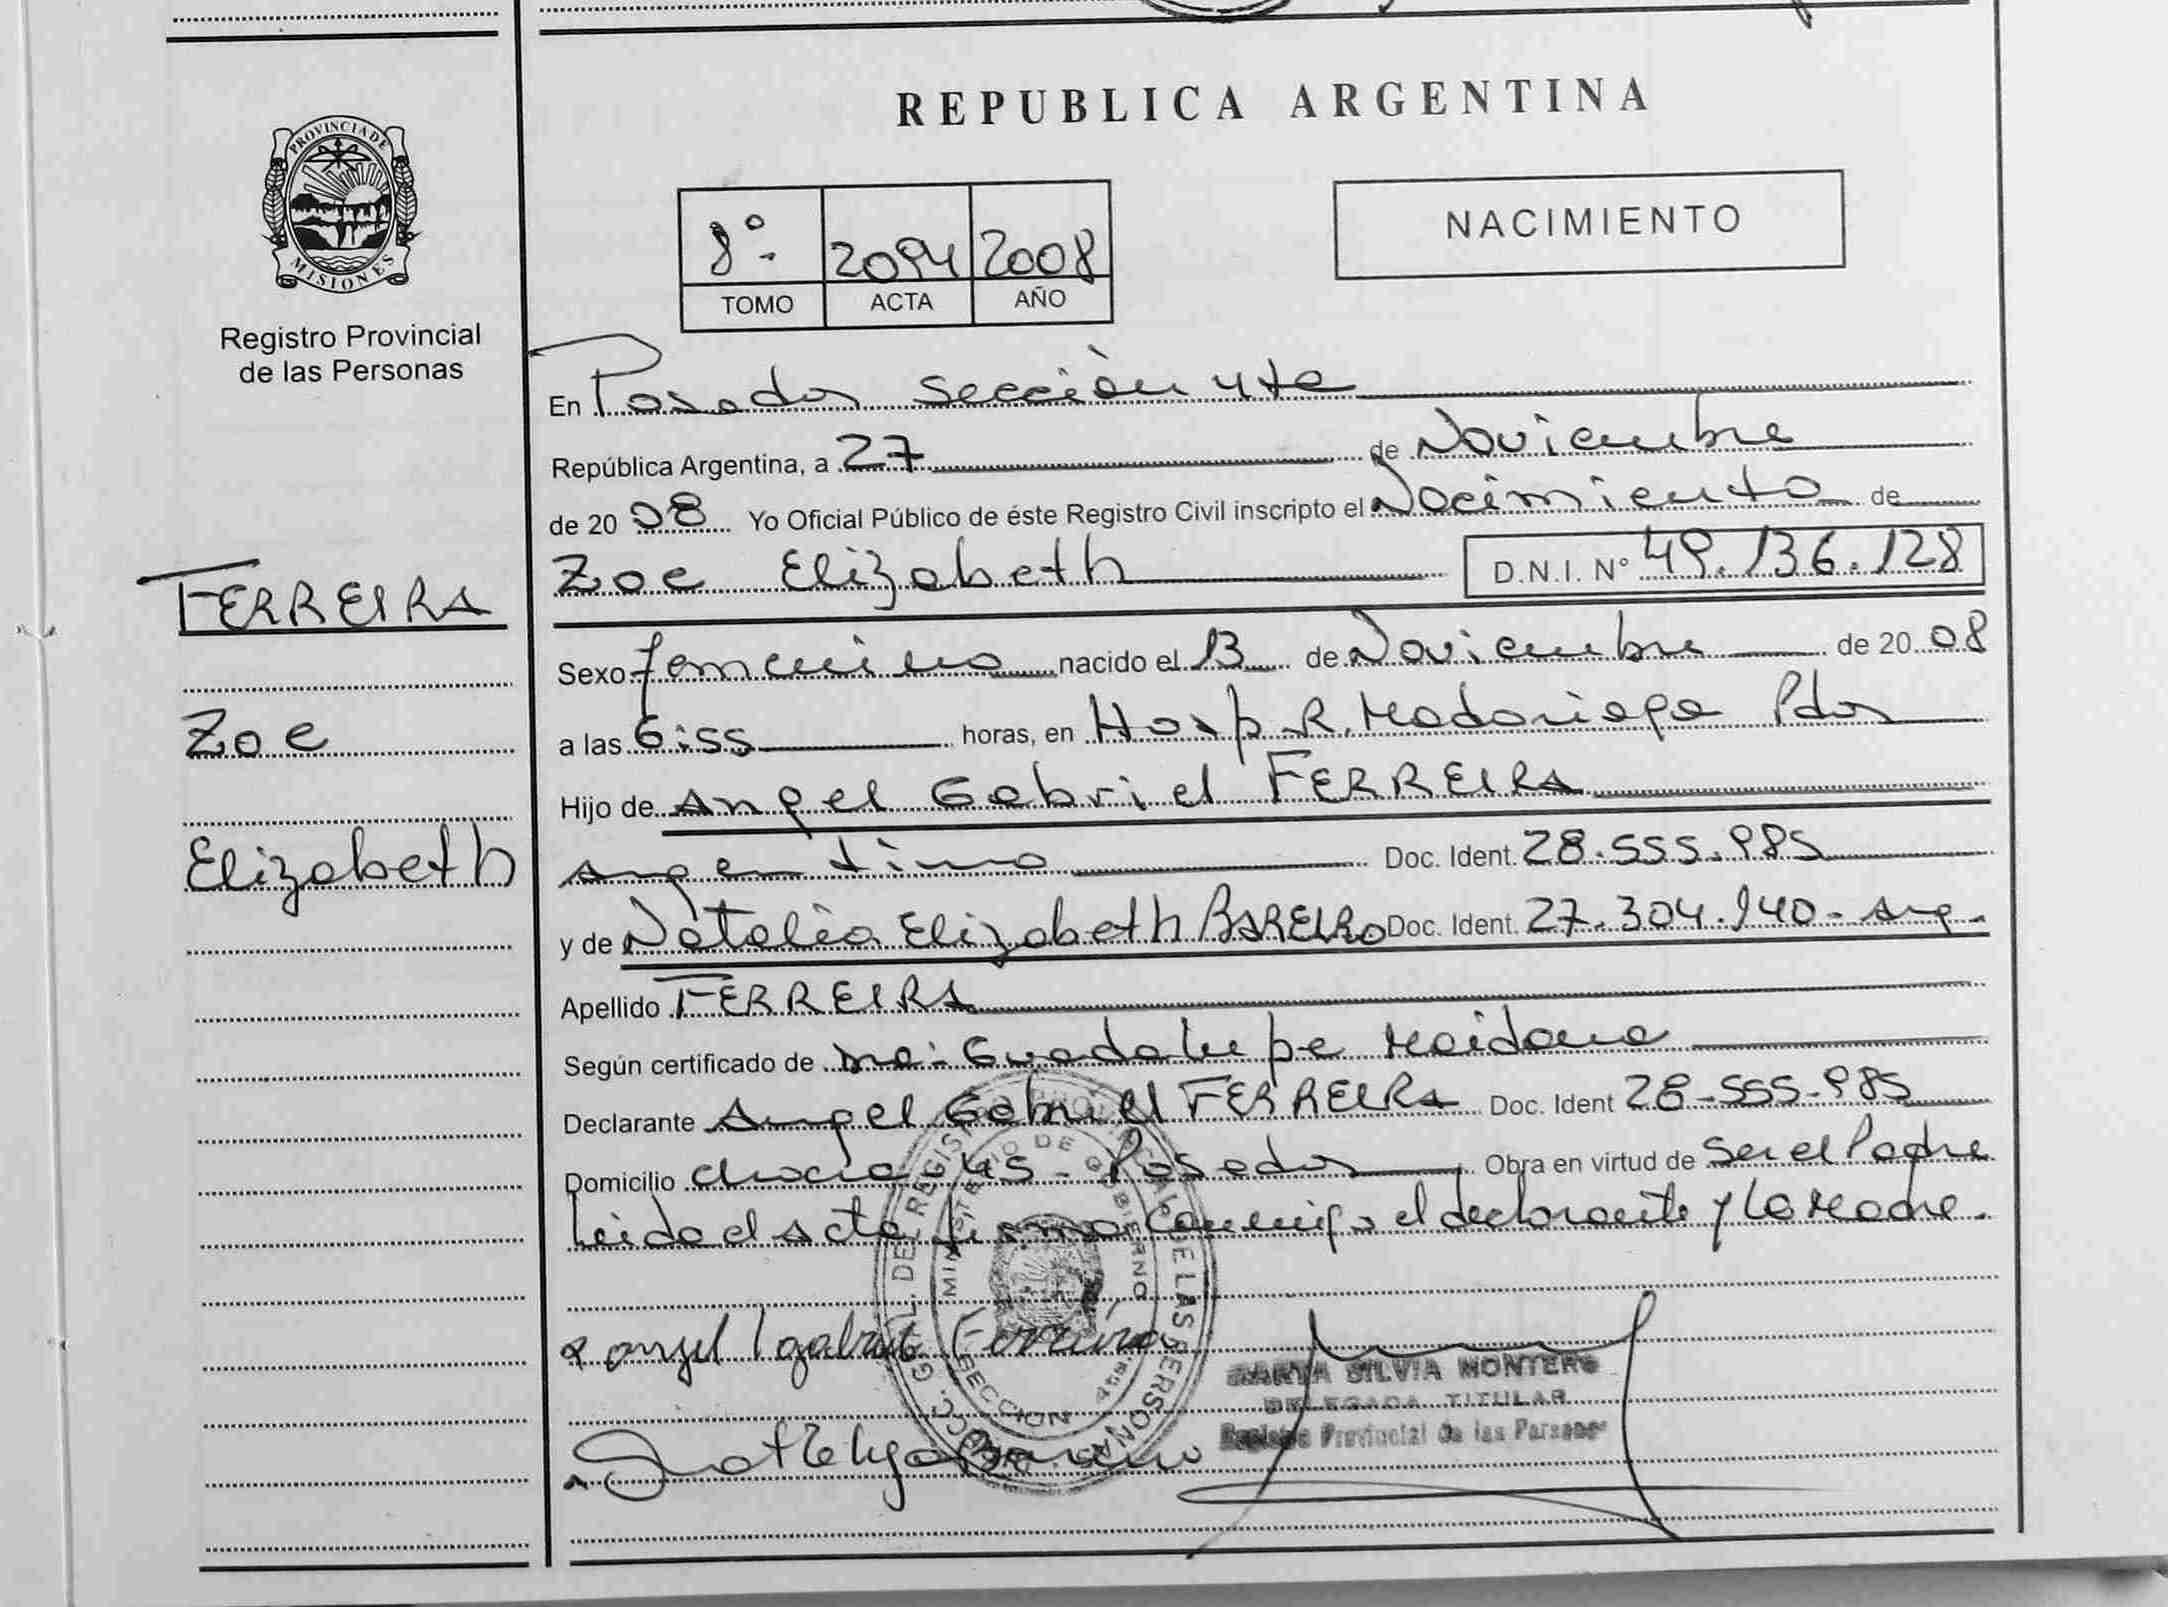 REPUBLICA ARGENTINA
PROVINCIA DE
MISIONES
Registro Provincial
de las Personas
8º- 2094 2008
TOMO ACTA AÑO
NACIMIENTO
En Posadas sección 4ta
República Argentina, a 27 de Noviembre
de 20 08 Yo Oficial Público de éste Registro Civil inscripto el Nacimiento de
Zoe Elizabeth D.N.I. Nº 49.136.128
FERREIRA
Zoe
Elizabeth
Sexo femenino nacido el 13 de Noviembre de 20 08
a las 6:55 horas, en Hosp R. Madariaga Pdas
Hijo de Angel Gabriel FERREIRA
argentino Doc. Ident. 28.555.985
y de Natalia Elizabeth BAREIRO Doc. Ident. 27.304.940- arg.
Apellido FERREIRA
Según certificado de Guadalupe Maidana
Declarante Angel Gabriel FERREIRA Doc. Ident 28-555-985
Domicilio chacra 45- Posadas Obra en virtud de Ser el Padre
Leida el acta firma conmigo el declarante y la Madre.
MINISTERIO DE GOBIERNO
SECCION
Ferreira
MARTA SILVIA MONTERO
DELEGADA TITULAR
Registro Provincial de las Personas